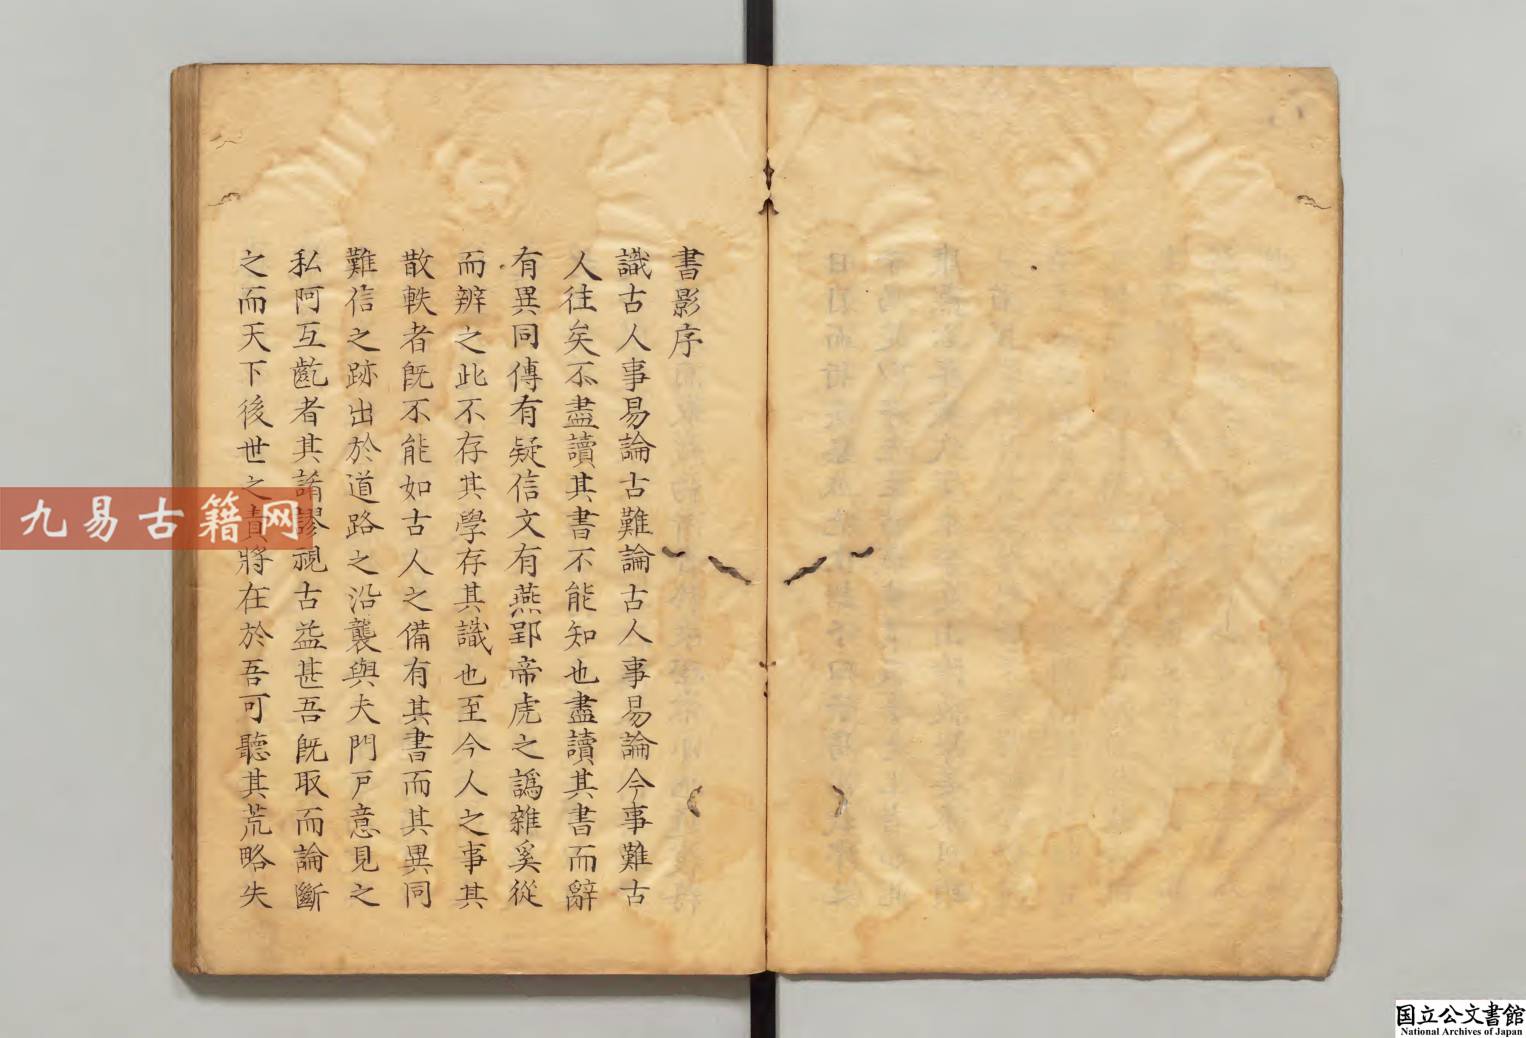 書影序
識古人事易論古難論古人事易論今事難古
人往矣不盡讀其書不能知也盡讀其書而辭
有異同傳有疑信文有燕郢帝虎之譌雜奚從
而辨之此不存其學存其識也至今人之事其
散軼者旣不能如古人之備有其書而其異同
難信之跡出於道路之沿襲與夫門戸意見之
私阿互齕者其諸謬視古益甚吾旣取而論斷
之而天下後世之責將在於吾可聽其荒略失
九易古籍网
国立公文書館
National Archives of Japan